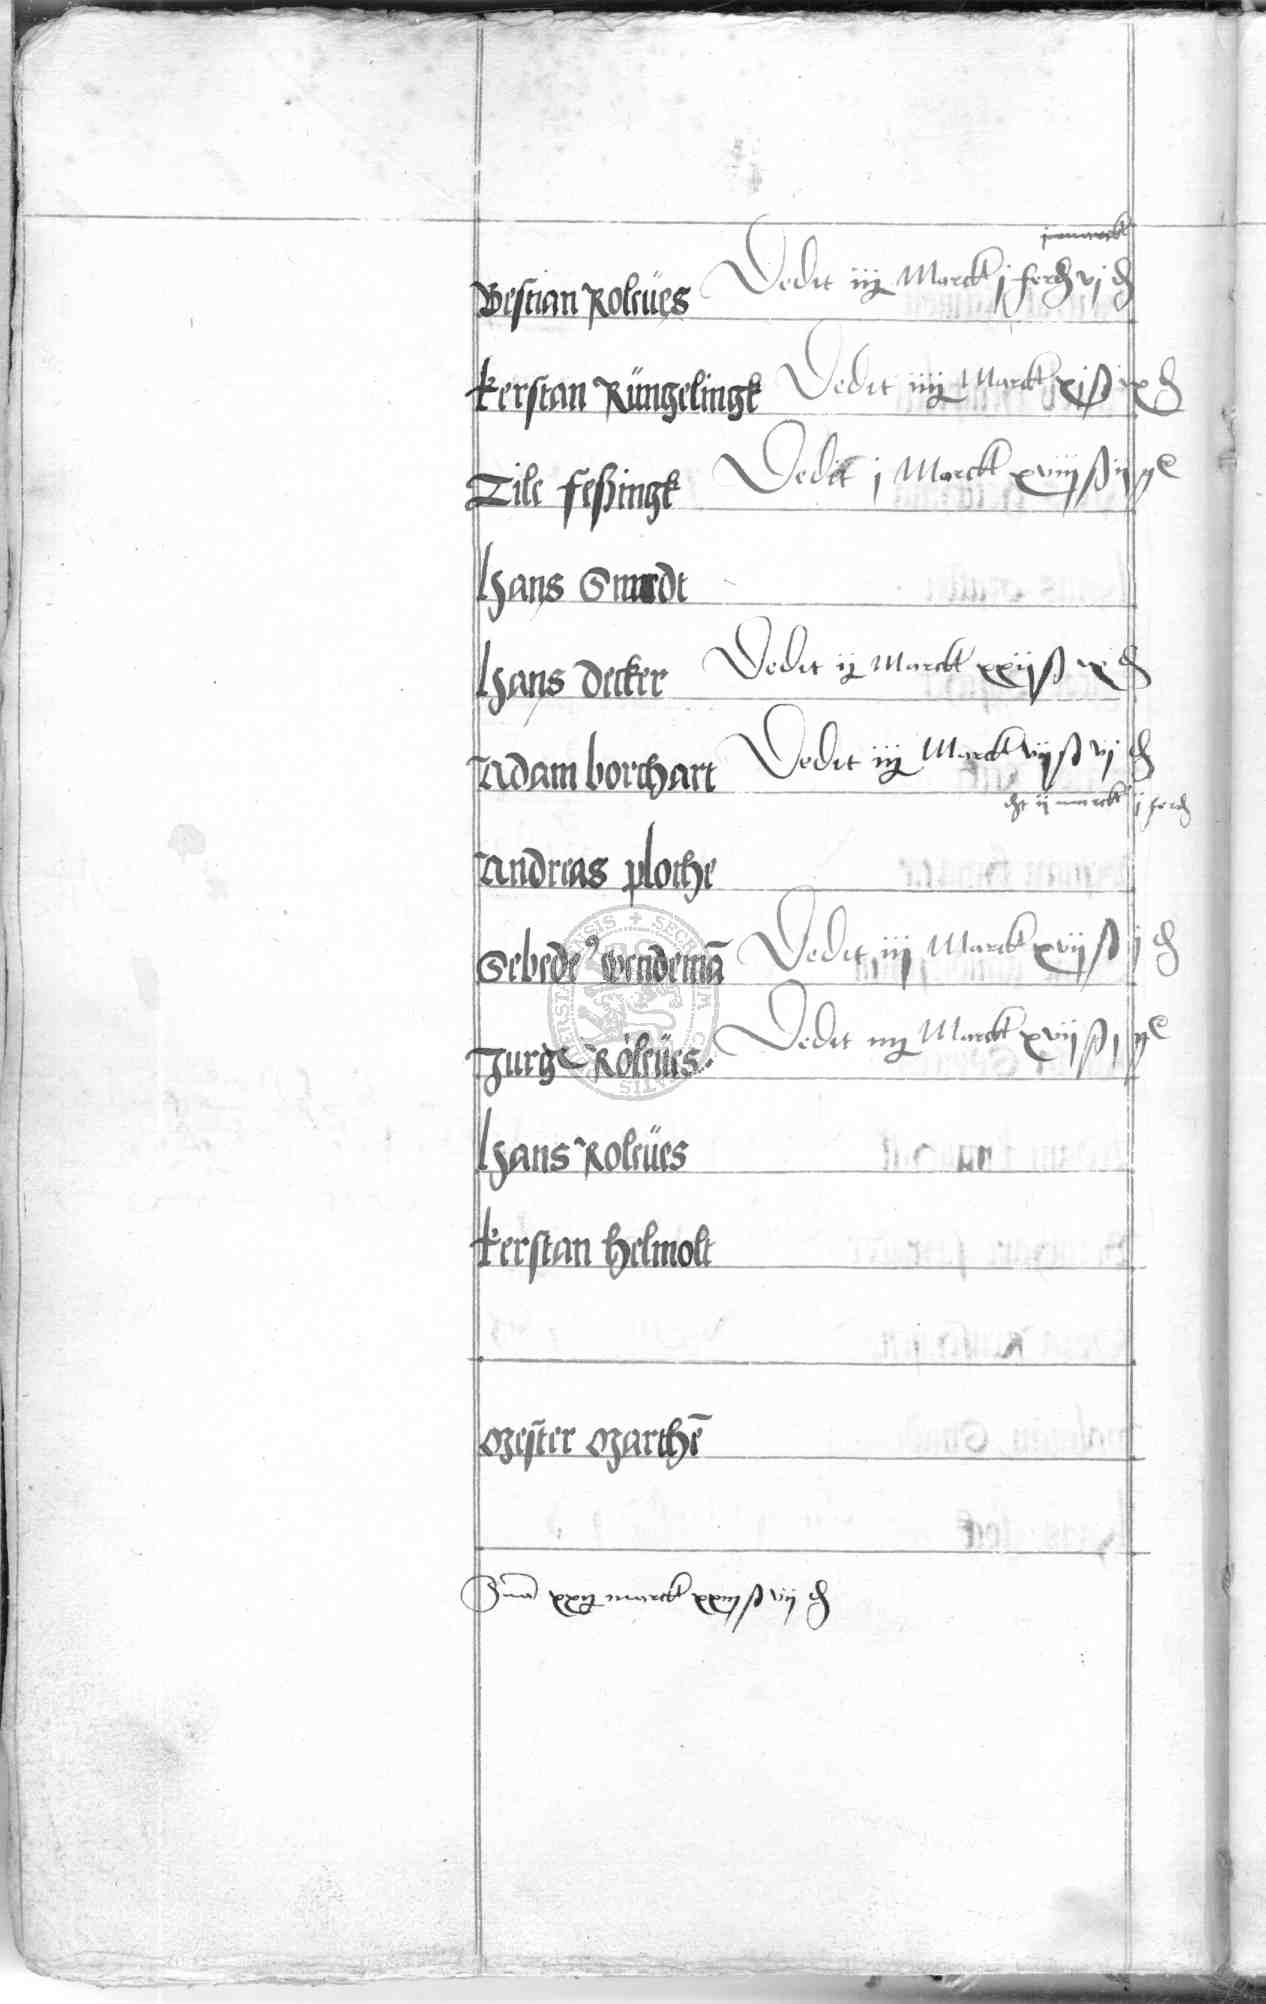 Bestian Roleües Dedit iij Marck j ferd vj ₰
kerstan Rüngelingk Dedit iiij Marck xj ß ix ₰
Tile feßingk Dedit j Marck xviiij ß
Hans
Hans decker Dedit ij Marck xxij ß ix ₰
Adam borchart Dedit iij Marck vij ß vj ₰
ij marck j ferd
Andreas ploche
Sebede⁹ wendemā Dedit iij Marck xvij ß j ₰
Jurge Röleües. Dedit iiij Marckt xvij ß j
Hans Roleües
kerstan helmolt
Mester Marthē
Sūma xxij marck xxiij ß vij ₰